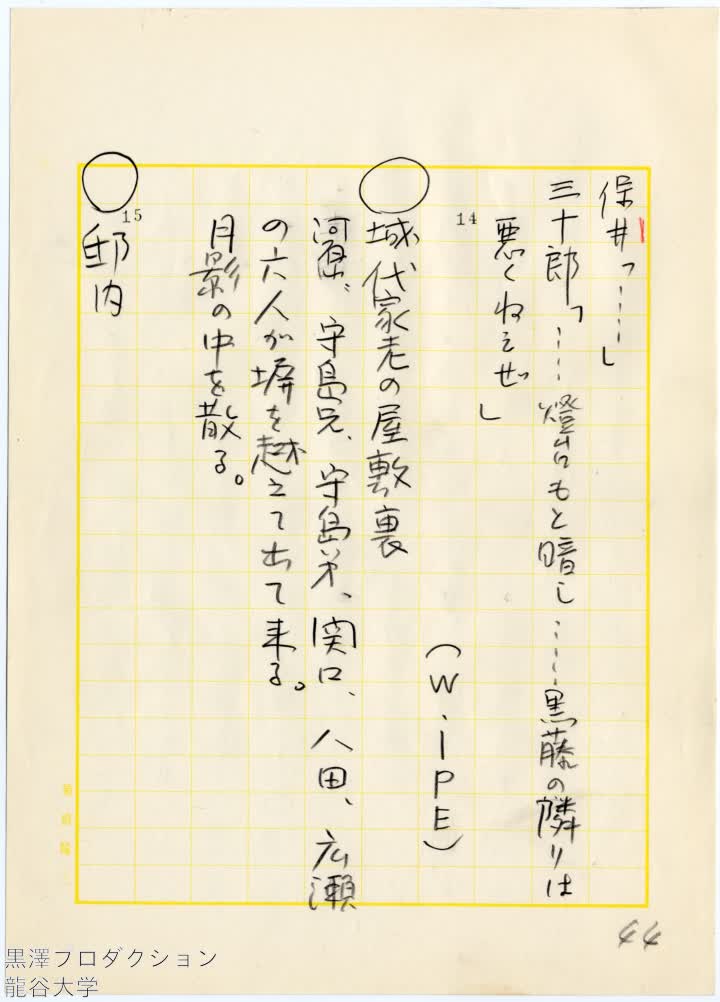 保井「……」
三十郎「……燈台もと暗し……黒藤の隣りは
悪くねえぜ」
(WIPE)
14
城代家老の屋敷裏
河原、守島兄、守島弟、関口、八田、広瀬
の六人が塀を越えて出て来る。
月影の中を散る。
15
邸内
44
黒澤プロダクション
龍谷大学